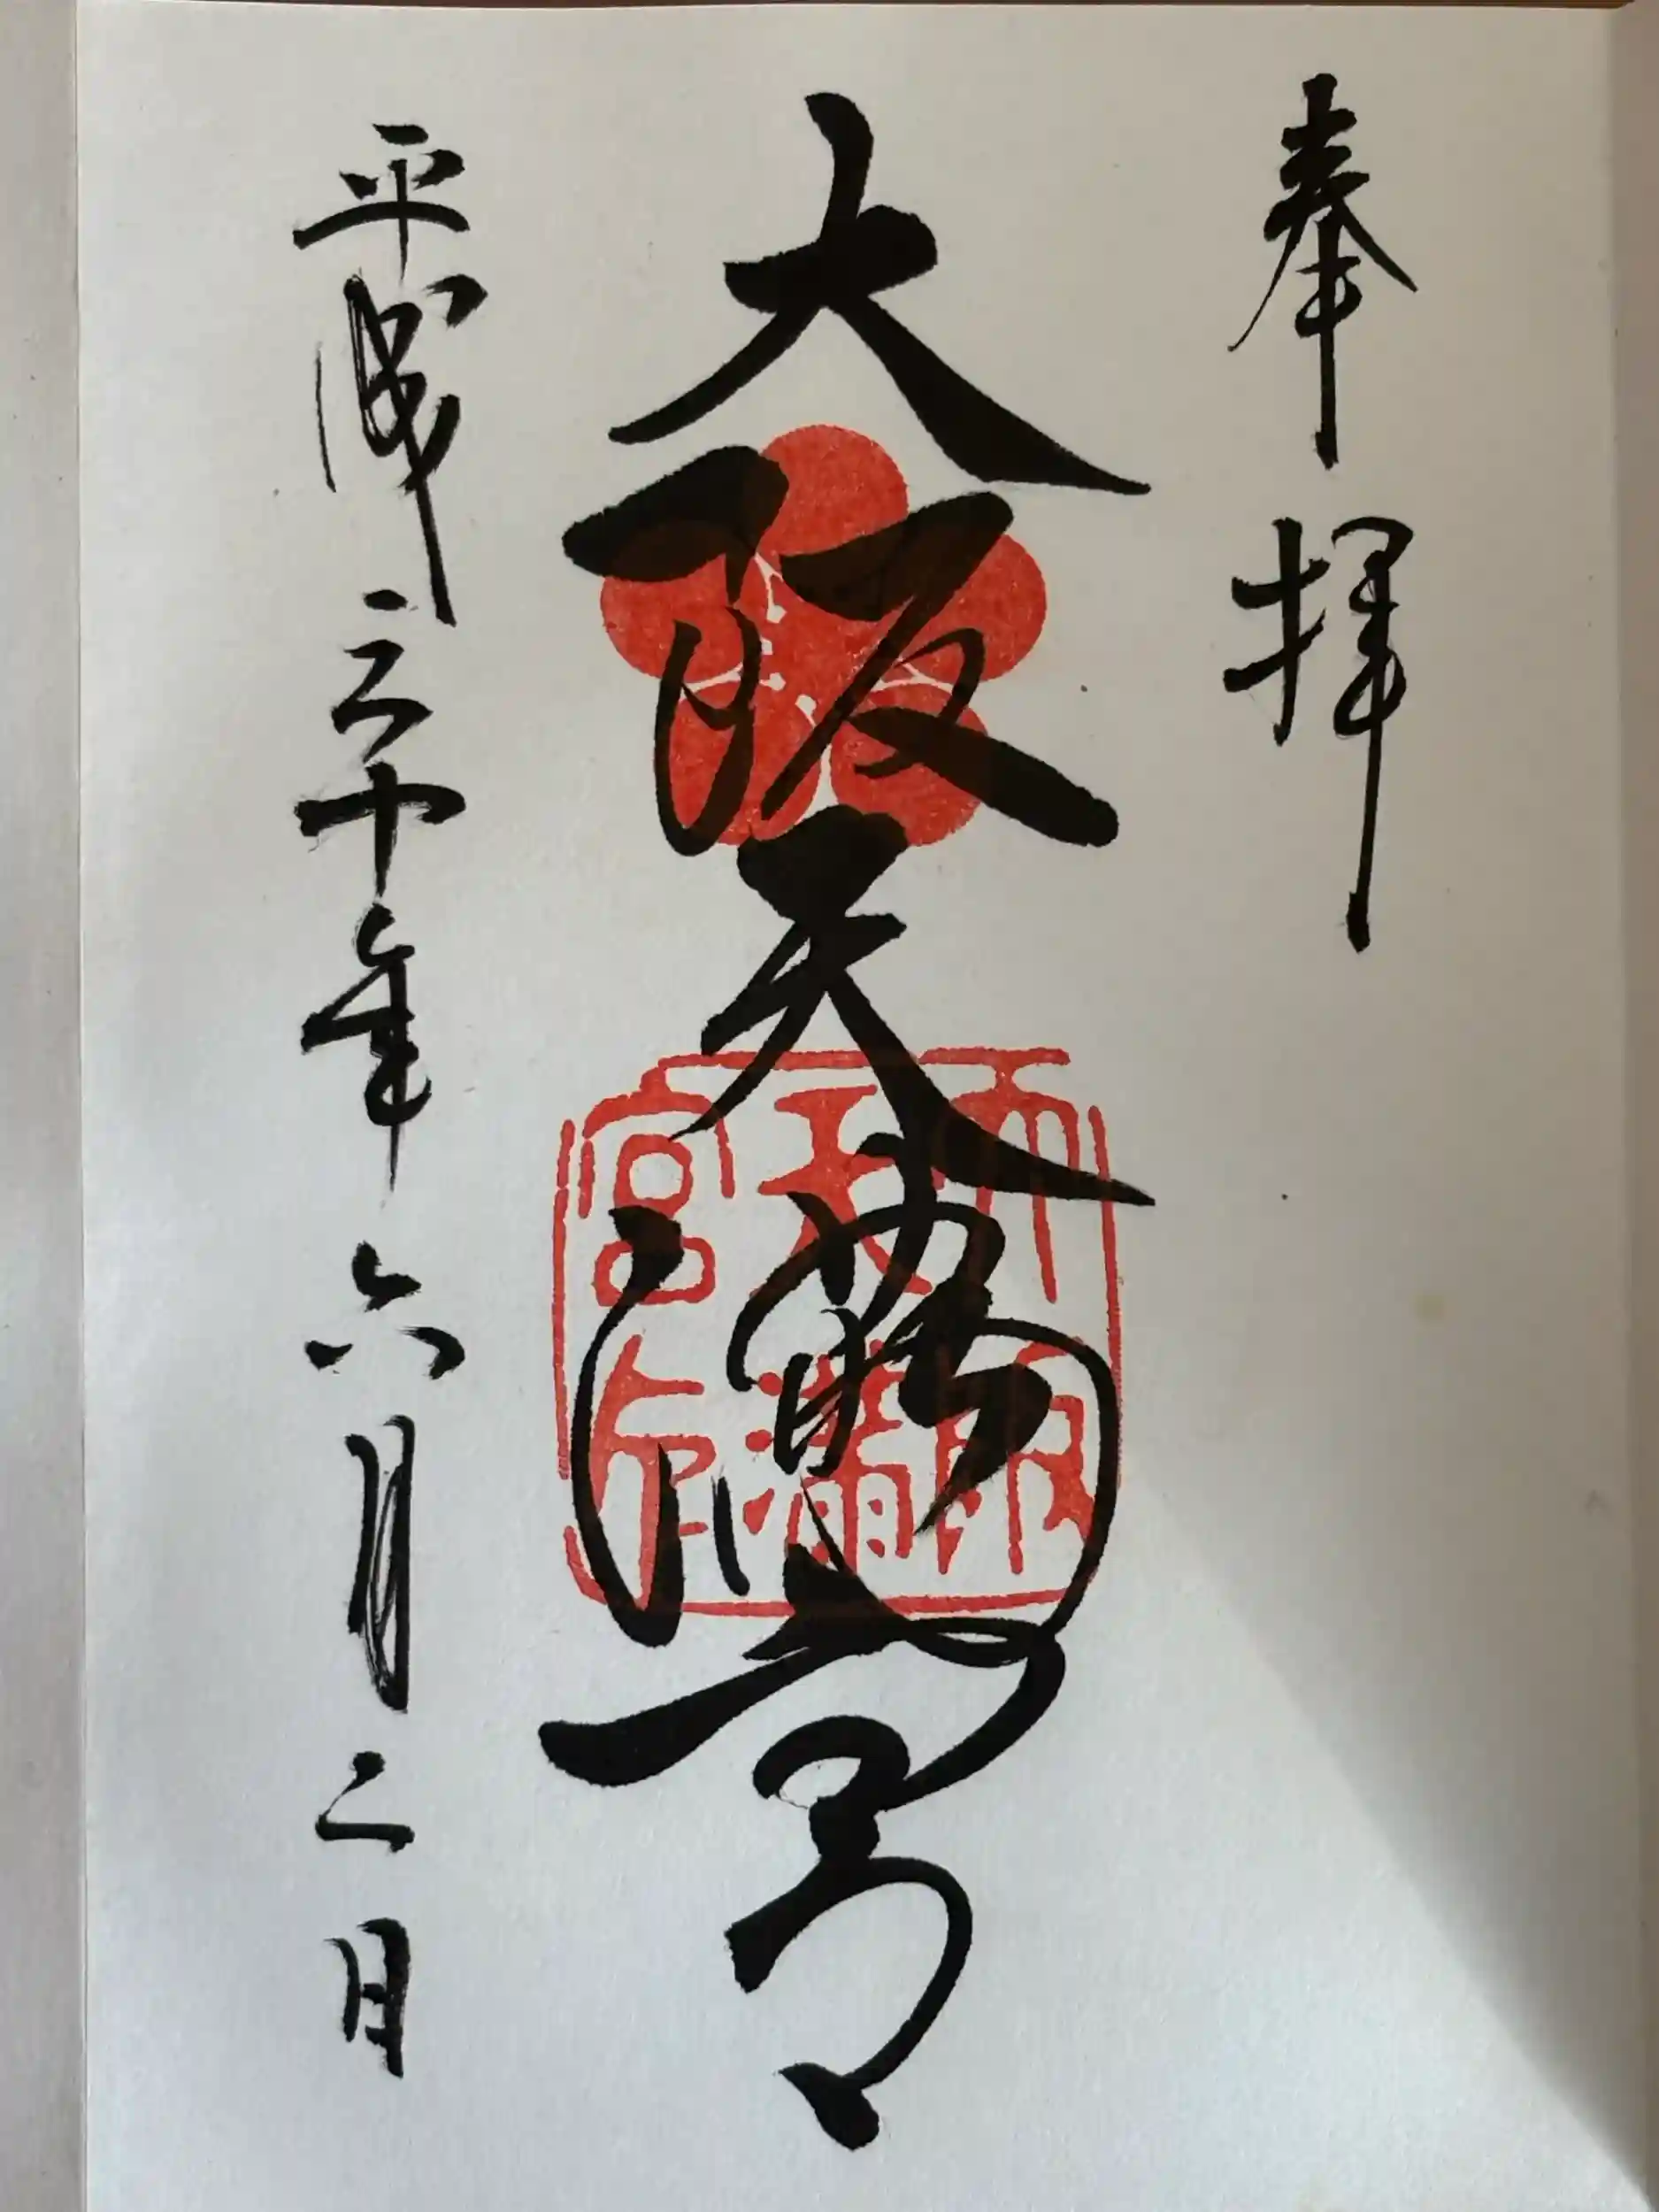 奉拝
大阪天満宮
平成三十年六月二日
大阪天満宮印